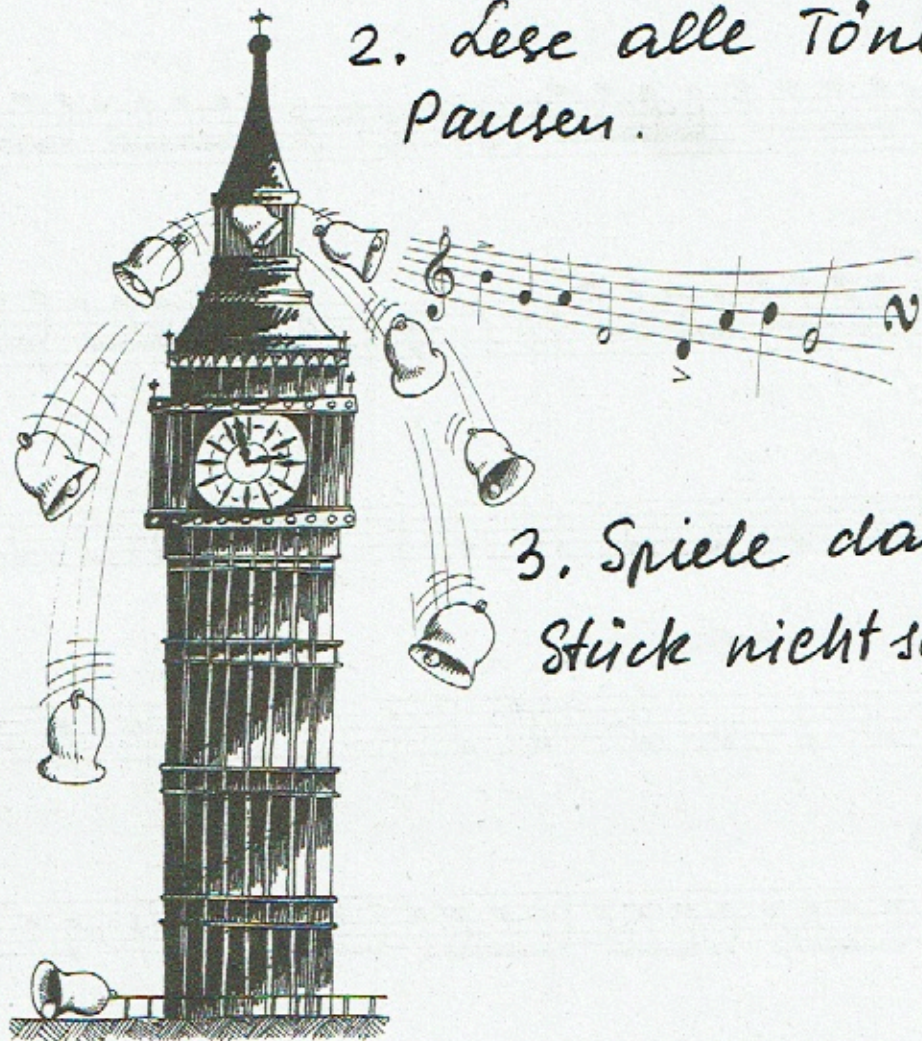 2. Lese alle Töne
Pausen.
3. Spiele da
Stück nicht s